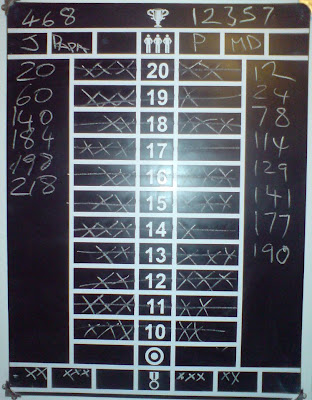 468 12357
J PAPA P MD
20
60
140
184
198
218
20
19
18
17
16
15
14
13
12
11
10
12
24
78
114
129
141
177
190
XX XXX XXX XX